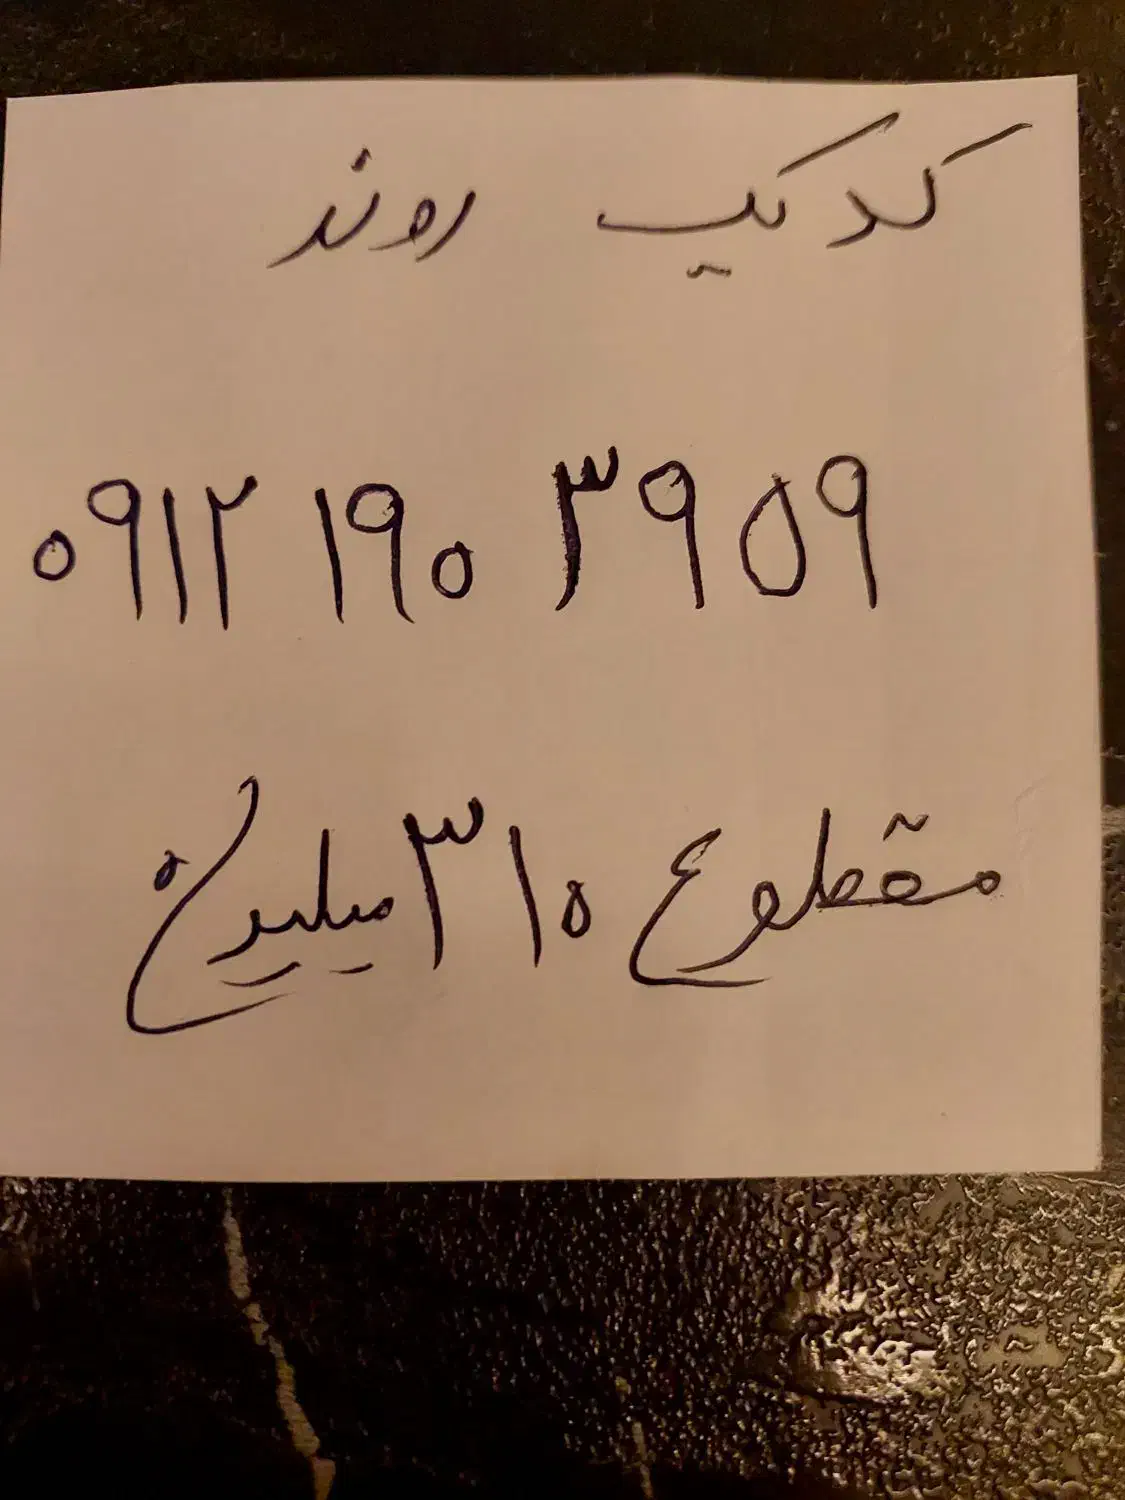 کد یک روند
۰۹۱۲ ۱۹۰ ۳۹۵۹
مقطوع ۳۱۰ میلیون